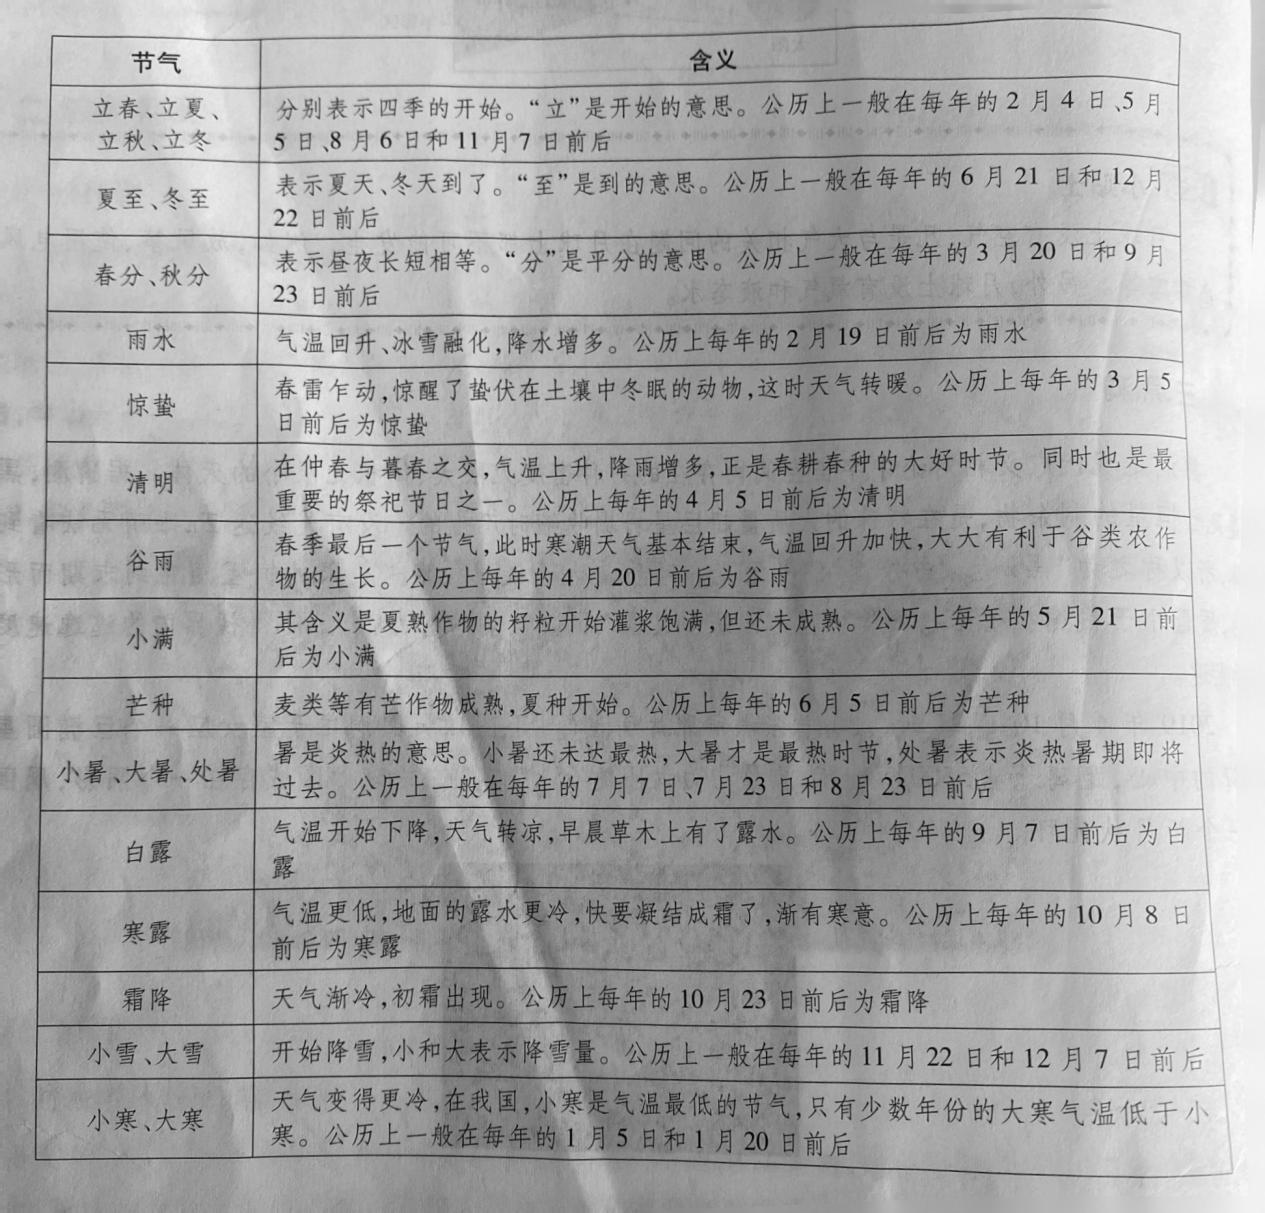 节气 含义
立春、立夏、 分别表示四季的开始。“立”是开始的意思。公历上一般在每年的2月4日、5月
立秋、立冬 5日、8月6日和11月7日前后
夏至、冬至 表示夏天、冬天到了。“至”是到的意思。公历上一般在每年的6月21日和12月
22日前后
春分、秋分 表示昼夜长短相等。“分”是平分的意思。公历上一般在每年的3月20日和9月
23日前后
雨水 气温回升、冰雪融化,降水增多。公历上每年的2月19日前后为雨水
惊蛰 春雷乍动,惊醒了蛰伏在土壤中冬眠的动物,这时天气转暖。公历上每年的3月5
日前后为惊蛰
清明 在仲春与暮春之交,气温上升,降雨增多,正是春耕春种的大好时节。同时也是最
重要的祭祀节日之一。公历上每年的4月5日前后为清明
谷雨 春季最后一个节气,此时寒潮天气基本结束,气温回升加快,大大有利于谷类农作
物的生长。公历上每年的4月20日前后为谷雨
小满 其含义是夏熟作物的籽粒开始灌浆饱满,但还未成熟。公历上每年的5月21日前
后为小满
芒种 麦类等有芒作物成熟,夏种开始。公历上每年的6月5日前后为芒种
小暑、大暑、处暑 暑是炎热的意思。小暑还未达最热,大暑才是最热时节,处暑表示炎热暑期即将
过去。公历上一般在每年的7月7日、7月23日和8月23日前后
白露 气温开始下降,天气转凉,早晨草木上有了露水。公历上每年的9月7日前后为白
露
寒露 气温更低,地面的露水更冷,快要凝结成霜了,渐有寒意。公历上每年的10月8日
前后为寒露
霜降 天气渐冷,初霜出现。公历上每年的10月23日前后为霜降
小雪、大雪 开始降雪,小和大表示降雪量。公历上一般在每年的11月22日和12月7日前后
小寒、大寒 天气变得更冷,在我国,小寒是气温最低的节气,只有少数年份的大寒气温低于小
寒。公历上一般在每年的1月5日和1月20日前后